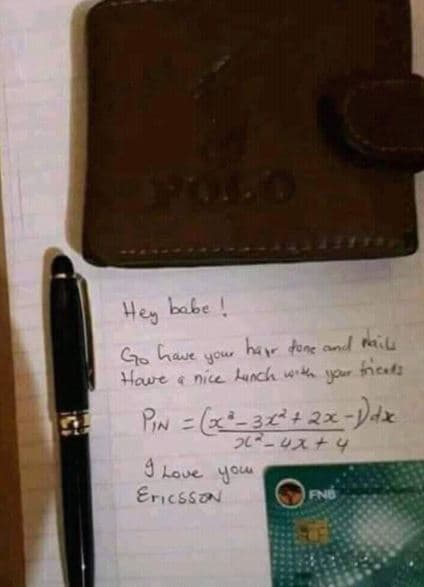 POLO
Hey babe !
Go have your hair done and Nails
Have a nice lunch with your friends
PIN = (x³-3x²+2x-1)dx
x²-4x+4
I Love you
ERICSSON
FNB